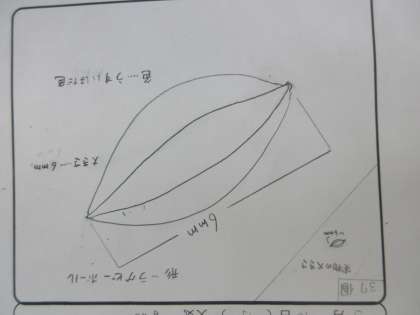 実物の大きさ
6mm
形…ラグビーボール
6mm
大きさ…6mm
色…うすいはだ色